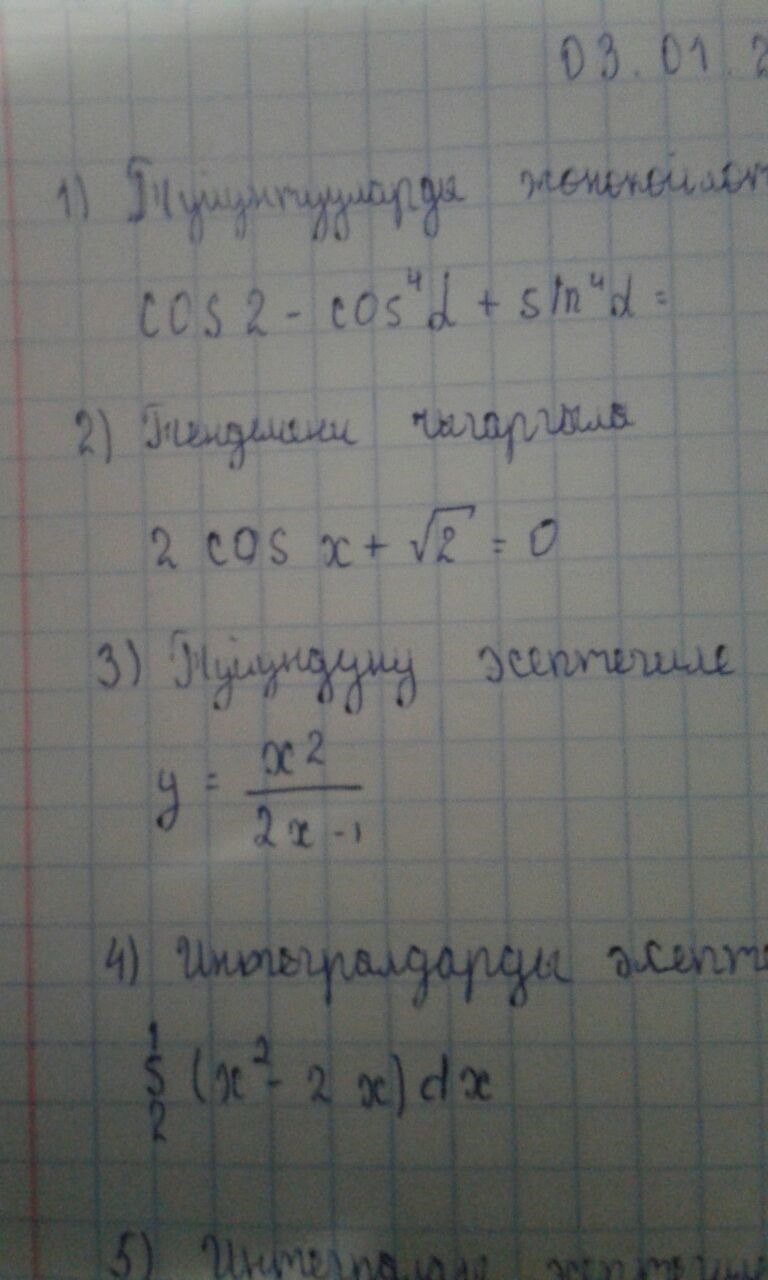 03.01.2
1) Туюнтууларды жөнөкөйлөт
cos 2 - cos⁴α + sin⁴α =
2) Теңдемени чыгаргыла
2 cos x + √2 = 0
3) Туундуну эсептегиле
y = x2 / 2x - 1
4) Интегралдарды эсепте
1
∫ (x² - 2x) dx
2
5) эсептегиле